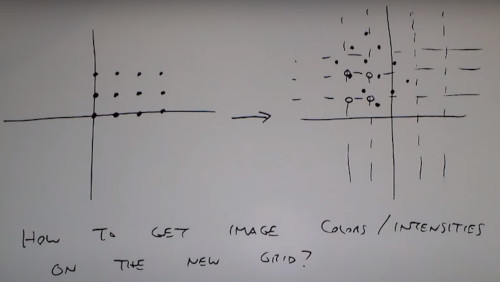 HOW TO GET IMAGE COLORS / INTENSITIES
ON THE NEW GRID?